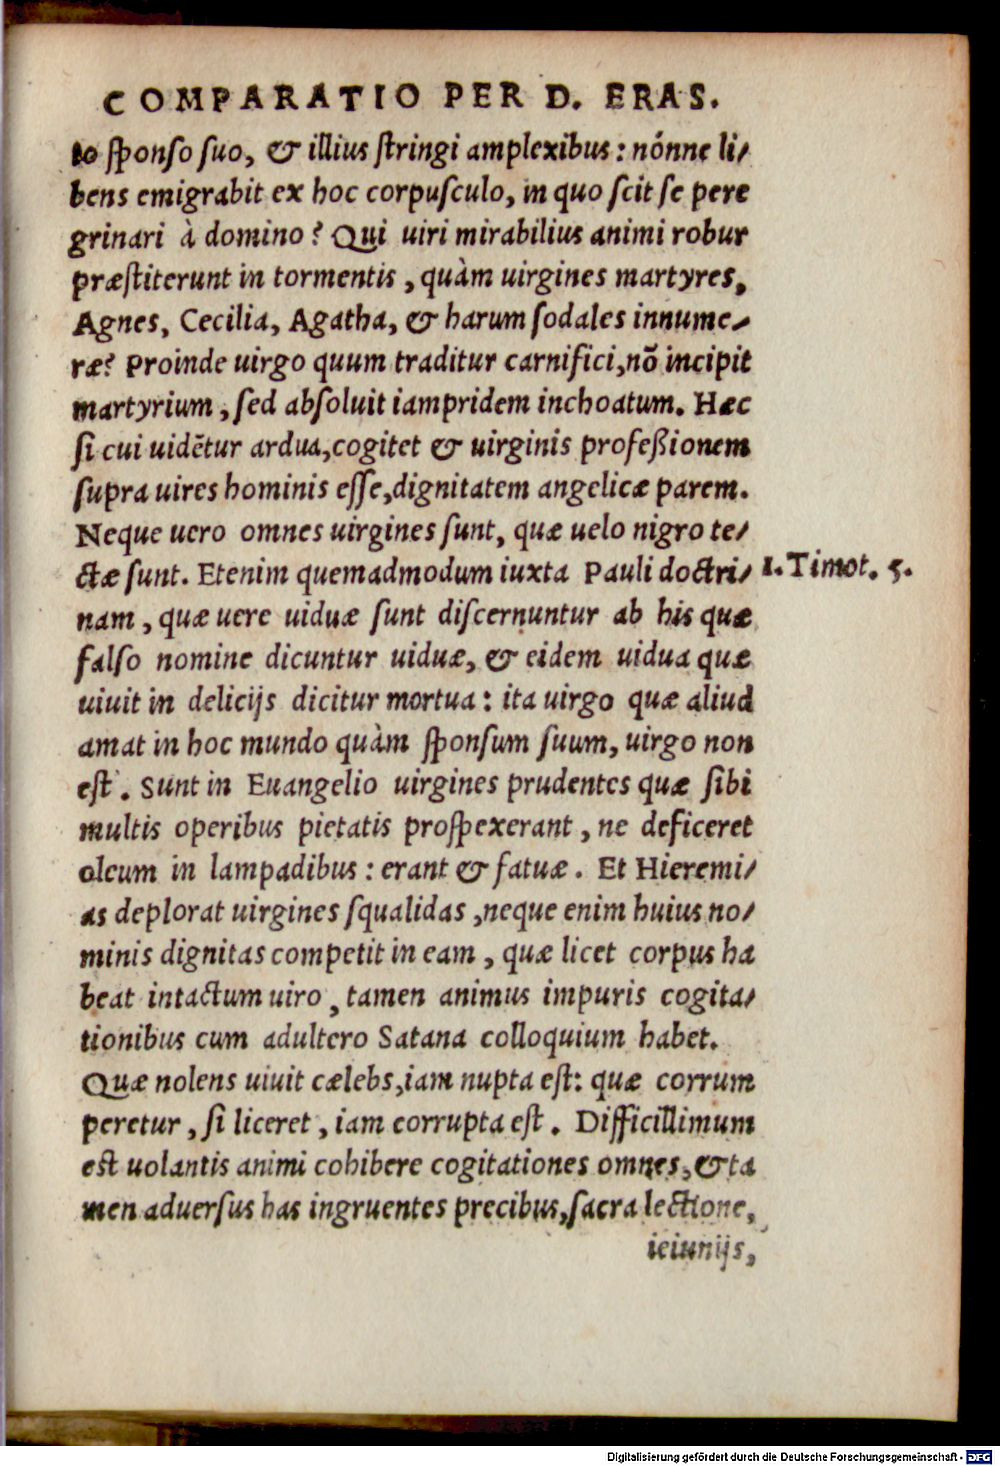 COMPARATIO PER D. ERAS.
lo sponſo ſuo, & illius ſtringi amplexibus: nónne li/
bens emigrabit ex hoc corpuſculo, in quo ſcit ſe pere
grinari à domino? Qui uiri mirabilius animi robur
præſtiterunt in tormentis, quàm uirgines martyres,
Agnes, Cecilia, Agatha, & harum ſodales innume/
ræ? Proinde uirgo quum traditur carnifici, nõ incipit
martyrium, ſed abſoluit iampridem inchoatum. Hæc
ſi cui uidẽtur ardua, cogitet & uirginis profeßionem
ſupra uires hominis eſſe, dignitatem angelicæ parem.
Neque uero omnes uirgines ſunt, quæ uelo nigro te/
ctæ ſunt. Etenim quemadmodum iuxta Pauli doctri/
1. Timot. 5.
nam, quæ uere uiduæ ſunt diſcernuntur ab his quæ
falſo nomine dicuntur uiduæ, & eidem uidua quæ
uiuit in delicijs dicitur mortua: ita uirgo quæ aliud
amat in hoc mundo quàm ſponſum ſuum, uirgo non
eſt. Sunt in Euangelio uirgines prudentes quæ ſibi
multis operibus pietatis proſpexerant, ne deficeret
oleum in lampadibus: erant & fatuæ. Et Hieremi/
as deplorat uirgines ſqualidas, neque enim huius no/
minis dignitas competit in eam, quæ licet corpus ha
beat intactum uiro, tamen animus impuris cogita/
tionibus cum adultero Satana colloquium habet.
Quæ nolens uiuit cælebs, iam nupta eſt: quæ corrum
peretur, ſi liceret, iam corrupta eſt. Difficillimum
eſt uolantis animi cohibere cogitationes omnes, & ta
men aduerſus has ingruentes precibus, ſacra lectione,
ieiunijs,
Digitalisierung gefördert durch die Deutsche Forschungsgemeinschaft - DFG